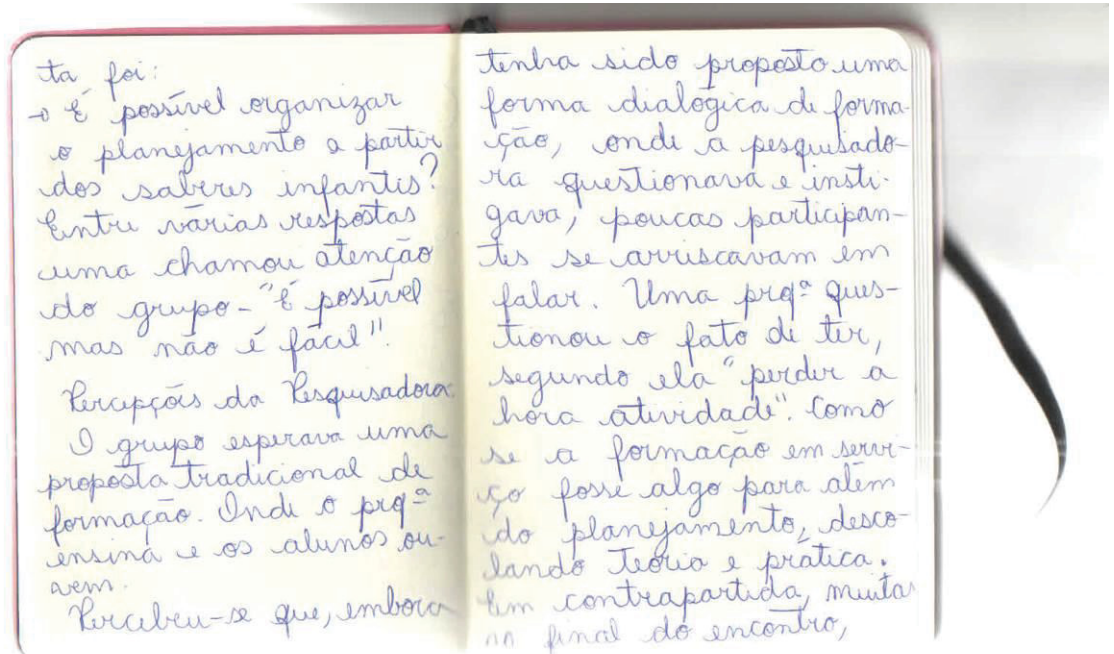 ta foi:
→ É possível organizar
o planejamento a partir
dos saberes infantis?
Entre várias respostas
uma chamou atenção
do grupo - "É possível
mas não é fácil".
Percepções da Pesquisadora.
O grupo esperava uma
proposta tradicional de
formação. Onde o profª
ensina e os alunos ou-
vem.
Percebeu-se que, embora
tenha sido proposto uma
forma dialógica de forma-
ção, onde a pesquisado-
ra questionava e insti-
gava, poucas participan-
tes se arriscavam em
falar. Uma profª ques-
tionou o fato de ter,
segundo ela "perder a
hora atividade". Como
se a formação em servi-
ço fosse algo para além
do planejamento, desco-
lando teoria e prática.
Em contrapartida, muitas
no final do encontro,